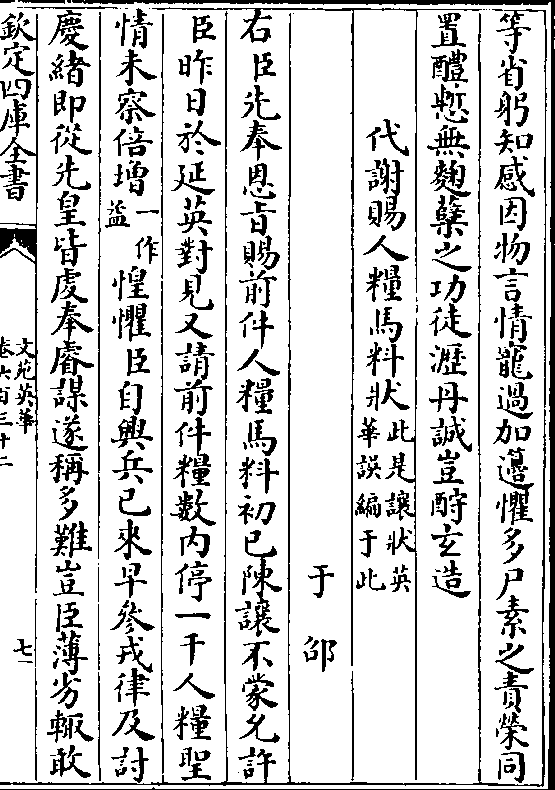 等省躬知感因物言情寵過加籩懼多尸素之責榮同
置醴慙無麴蘖之功徒瀝丹誠豈酧玄造
代謝賜人糧馬料狀此是讓狀英華誤編于此
于邵
右臣先奉恩旨賜前件人糧馬料初已陳讓不蒙允許
臣昨日於延英對見又請前件糧數内停一千人糧聖
情未察倍增一作益惶懼臣自興兵已來早參戎律及討
慶緒即從先皇皆虔奉睿謀遂稱多難豈臣薄劣輙敢
欽定四庫全書
文苑英華
卷六百三十二
七